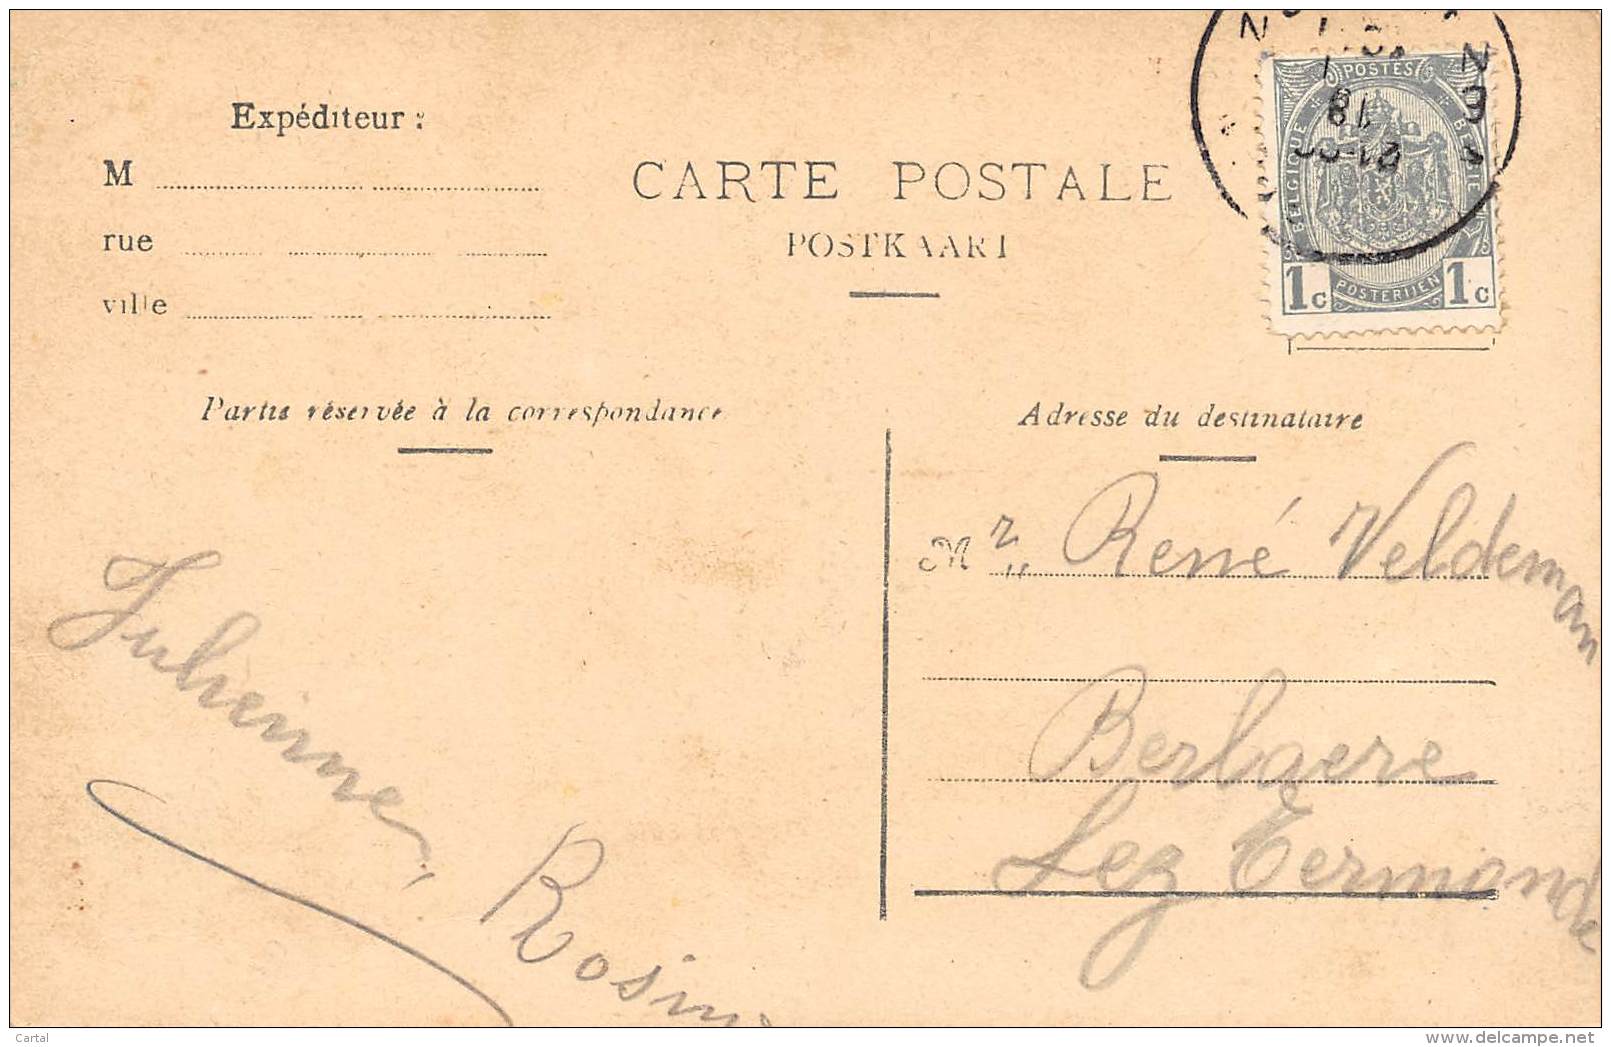 Expéditeur :
M
rue
ville
CARTE POSTALE
POSTKAART
POSTES
BELGIQUE
BELGIE
POSTERIJEN
1c 1c
Partie réservée à la correspondance
Adresse du destinataire
Mr René Veldeman
Berlaere
Lez Termonde
Julienne,
Rosin
Cartal
delcampe.net